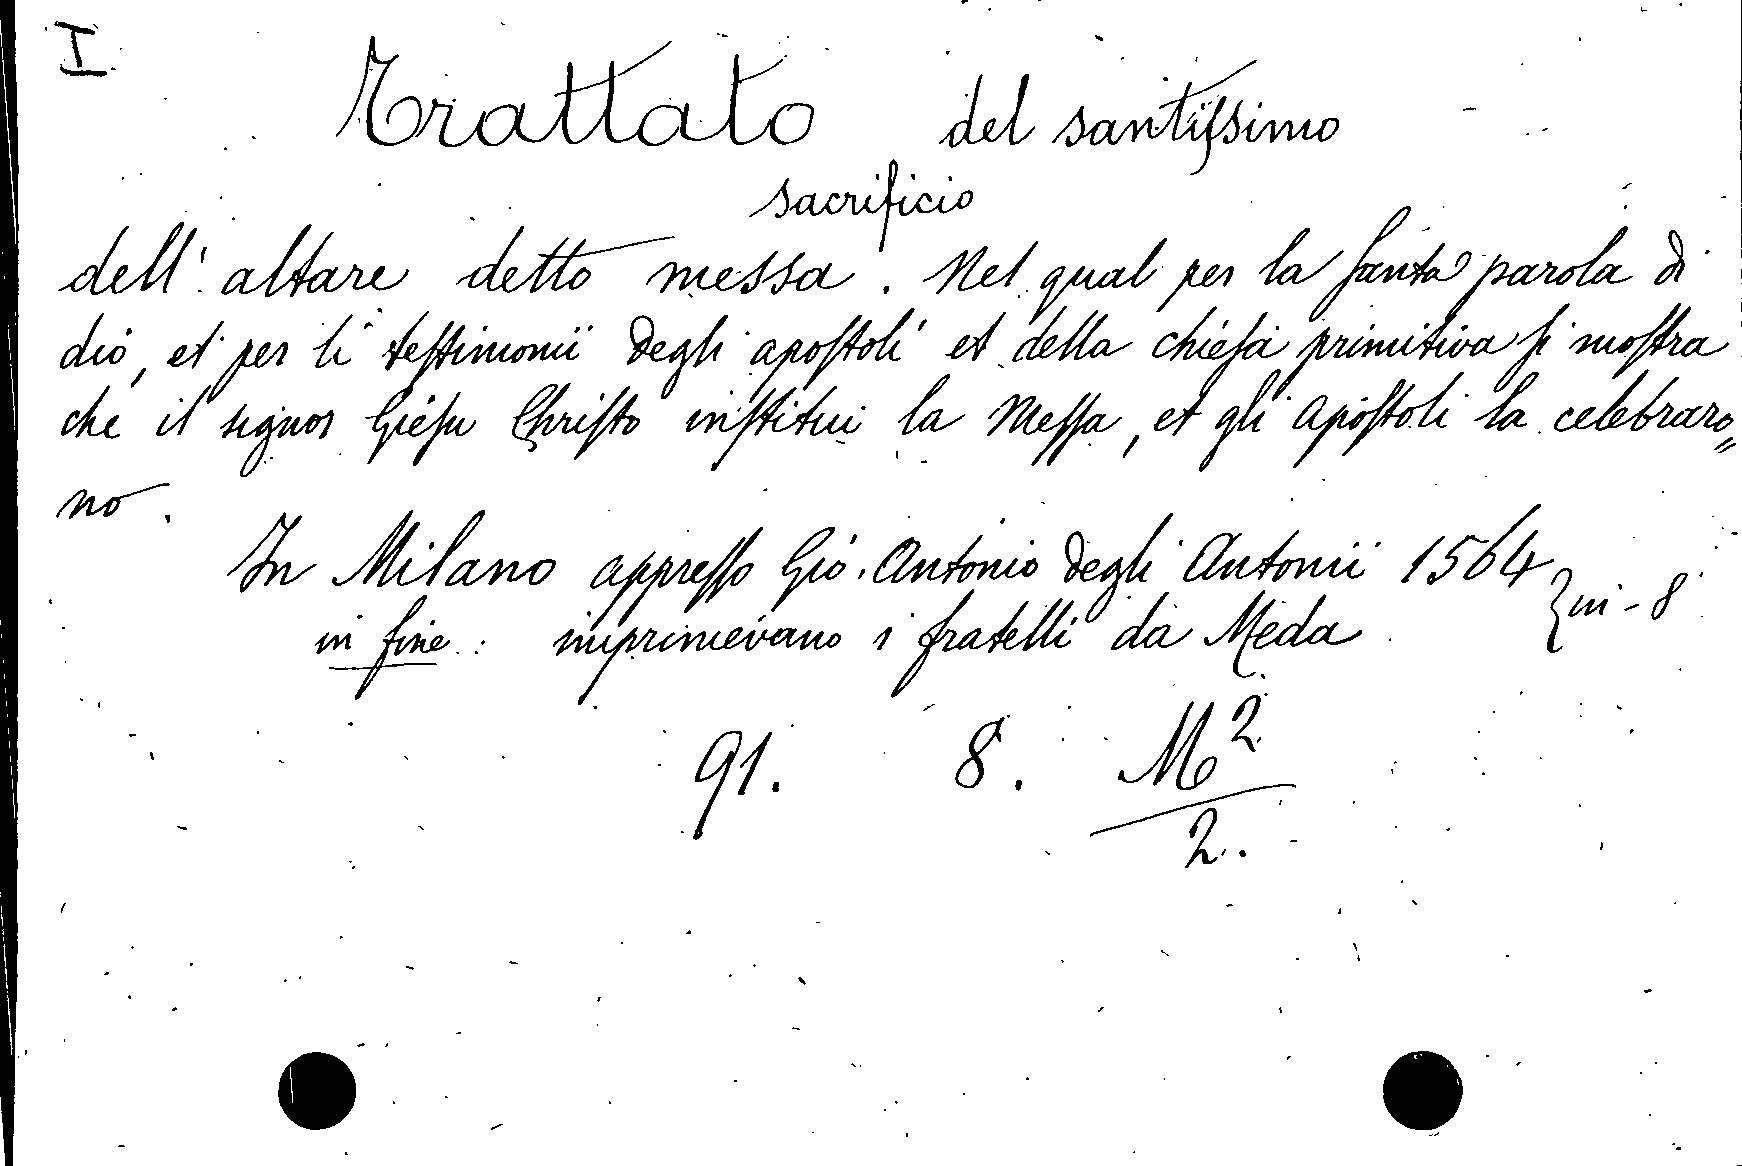 I
Trattato del santiſsimo
sacrificio
dell' altare detto messa. Nel qual per la ſanta parola di
dio, et per li teſtimonii degli apoſtoli et della chieſa primitiva ſi moſtra
che il signor Gieſu Chriſto inſtitui la Meſſa, et gli Apoſtoli la celebraro„
no.
In Milano appreſſo Gio. Antonio degli Antonii 1564
in fine: imprimevano i fratelli da Meda } in-8
91. 8. M2
2.